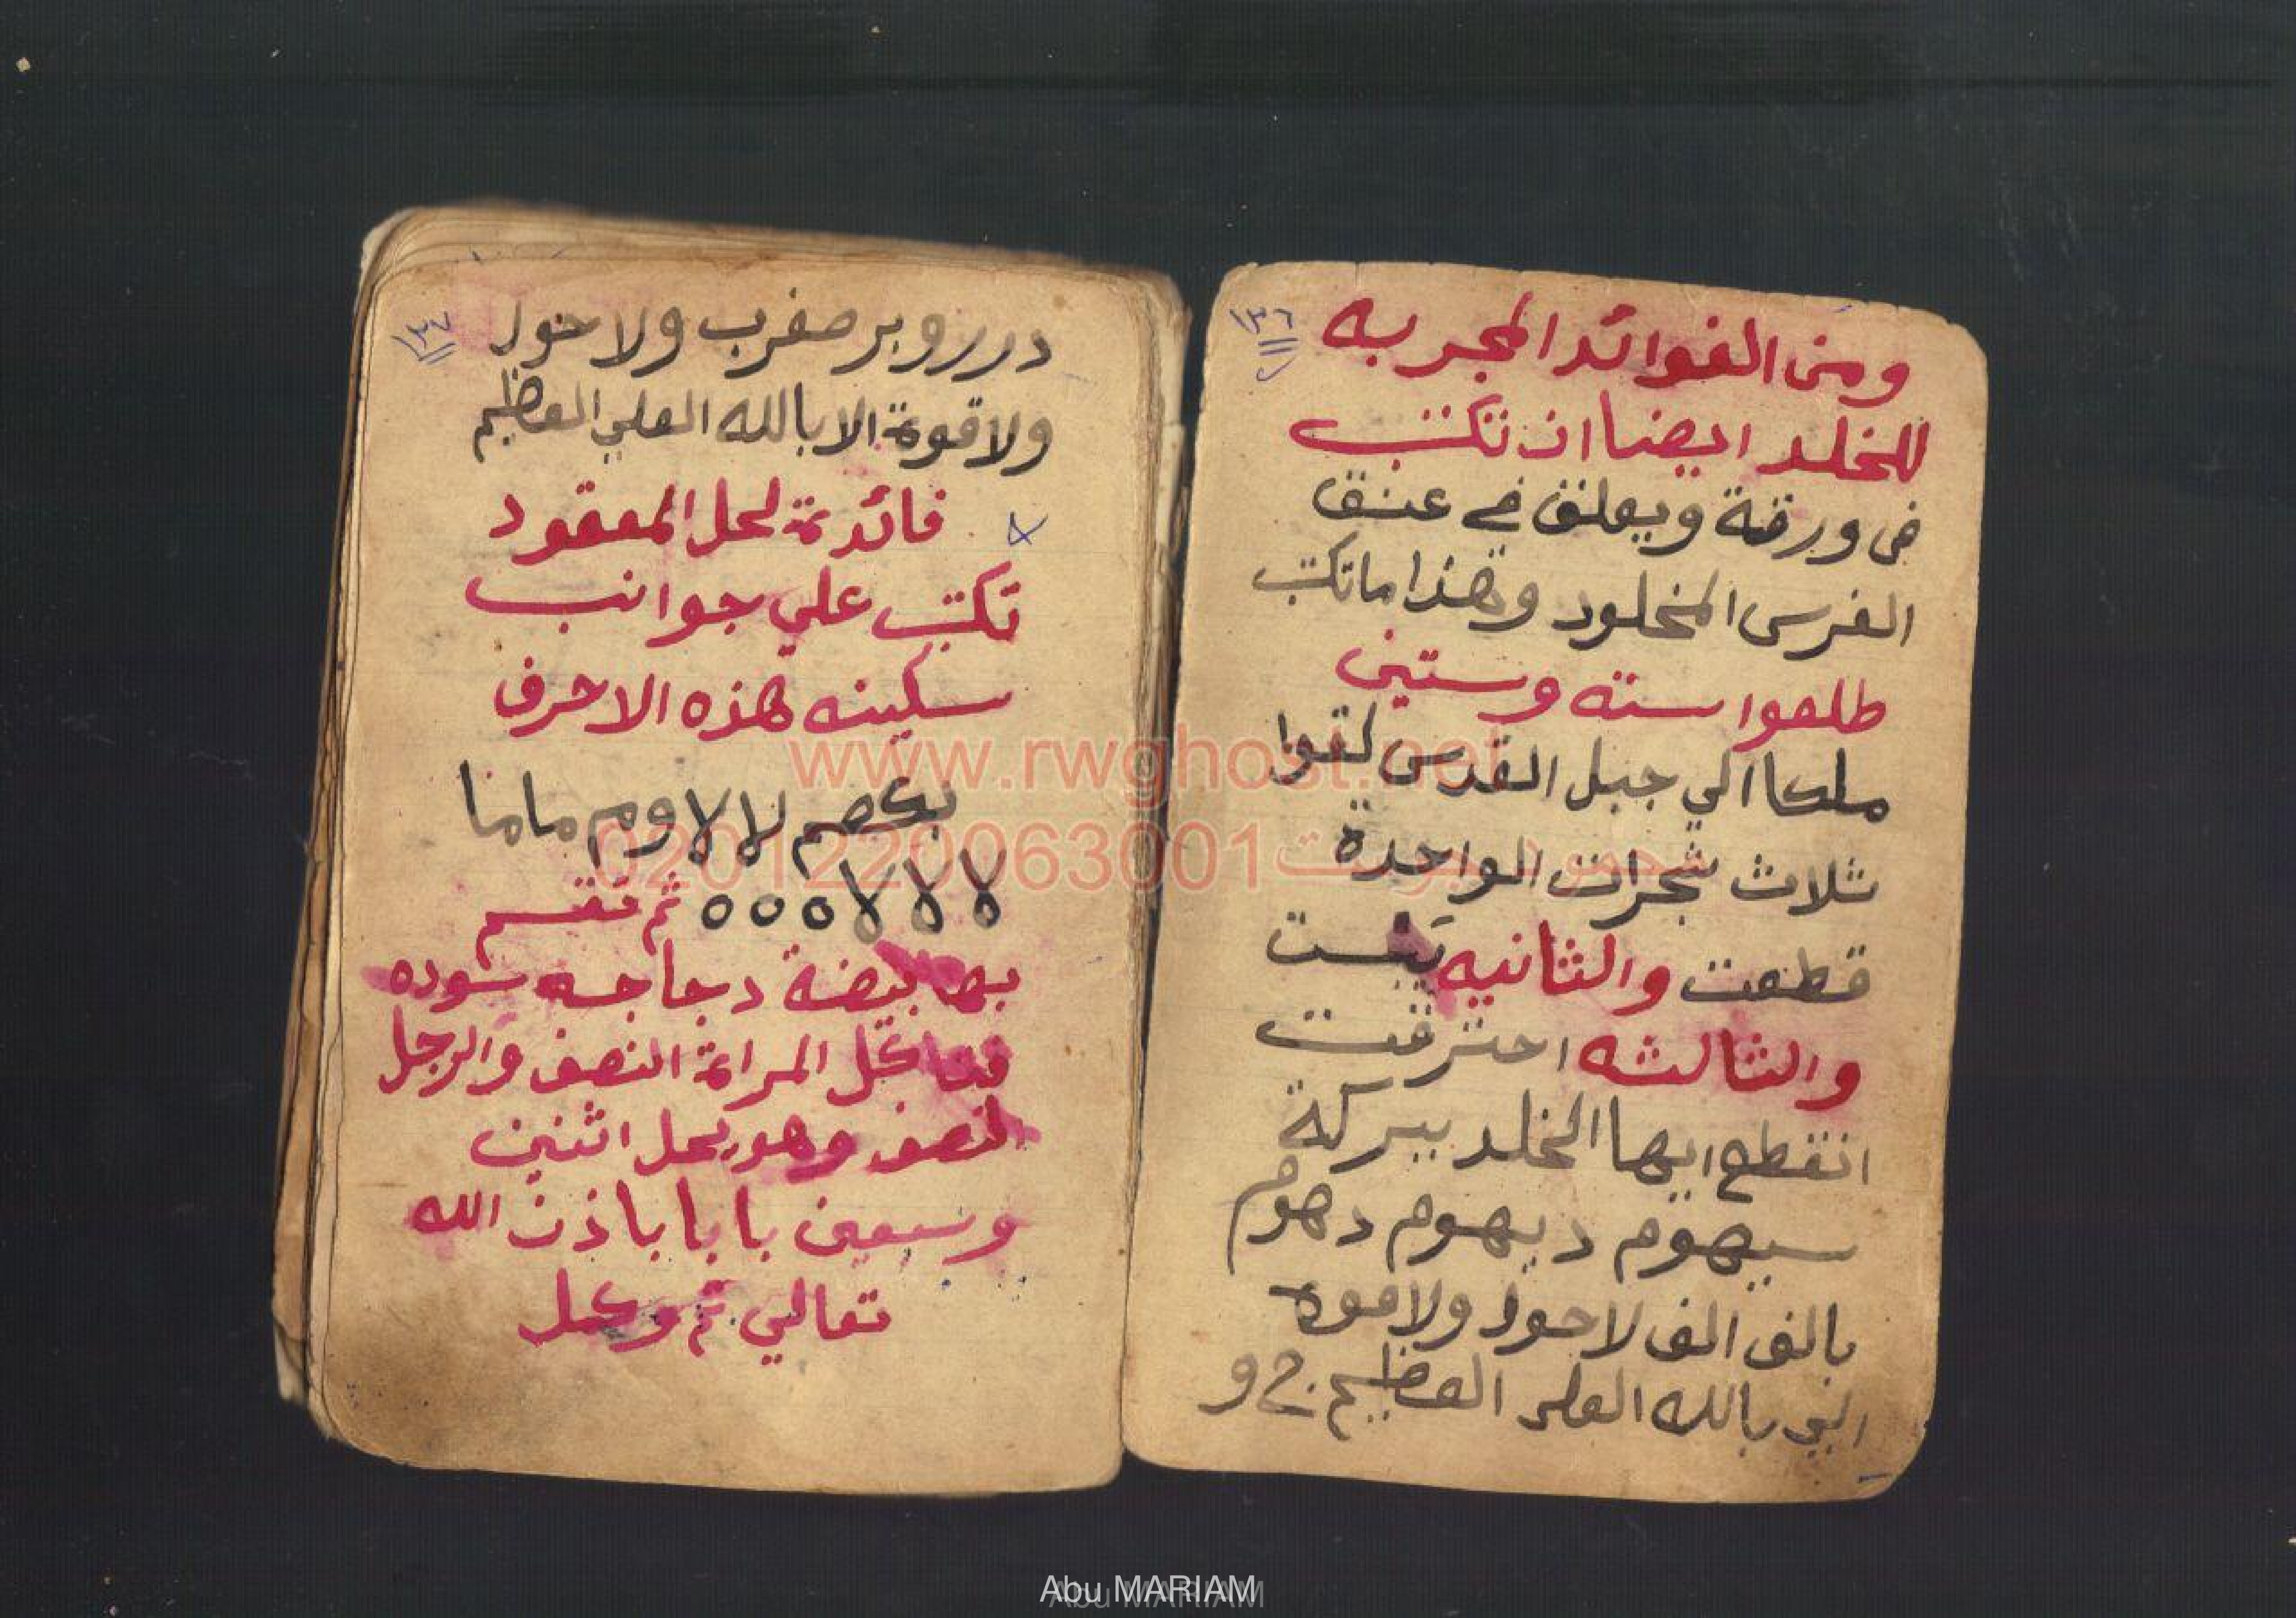 ١٣٦
ومن الفوائد المجربه
للخلد ايضا ان تكتب
في ورقة ويعلق في عنق
الفرس المخلود وهذا ما تكتب
طلعوا سته وستين
ملكا الي جبل القدس لقوا
ثلاث شجرات الواحدة
قطعت والثانيه يبست
والثالثه احترقت
انقطع ايها الخلد ببركة
سيهوم ديهوم دهوم
بالف الف لاحول ولاقوة
بالله العلي العظيم
١٣٧
ولاحول
ولاقوة الا بالله العلي العظيم
فائدة لحل المعقود
تكتب علي جوانب
سكينه هذه الاحرف
لا لا وم ماما
لا لا لا ه ه ه ثم تقسم
بها بيضة دجاجه سوده
المراة النصف والرجل
النصف وهو يحل اثنين
وسبعين بابا باذن الله
تعالي تم وكمل
www.rwghost.net
0201220063001
Abu MARIAM